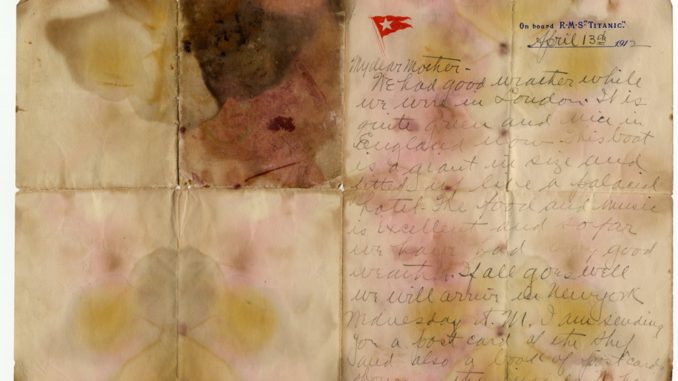 On board R.M.S. "TITANIC".
April 13th 1912
My dear Mother -
We had good weather while
we were in London. It is
quite green and nice in
England now. This boat
is a giant in size and
fitted up like a palacial
hotel. The food and music
is excellent and so far
we have had very good
weather. If all goes well
we will arrive in New York
Wednesday A.M. I am sending
you a post card of the ship
and also a book of postcards